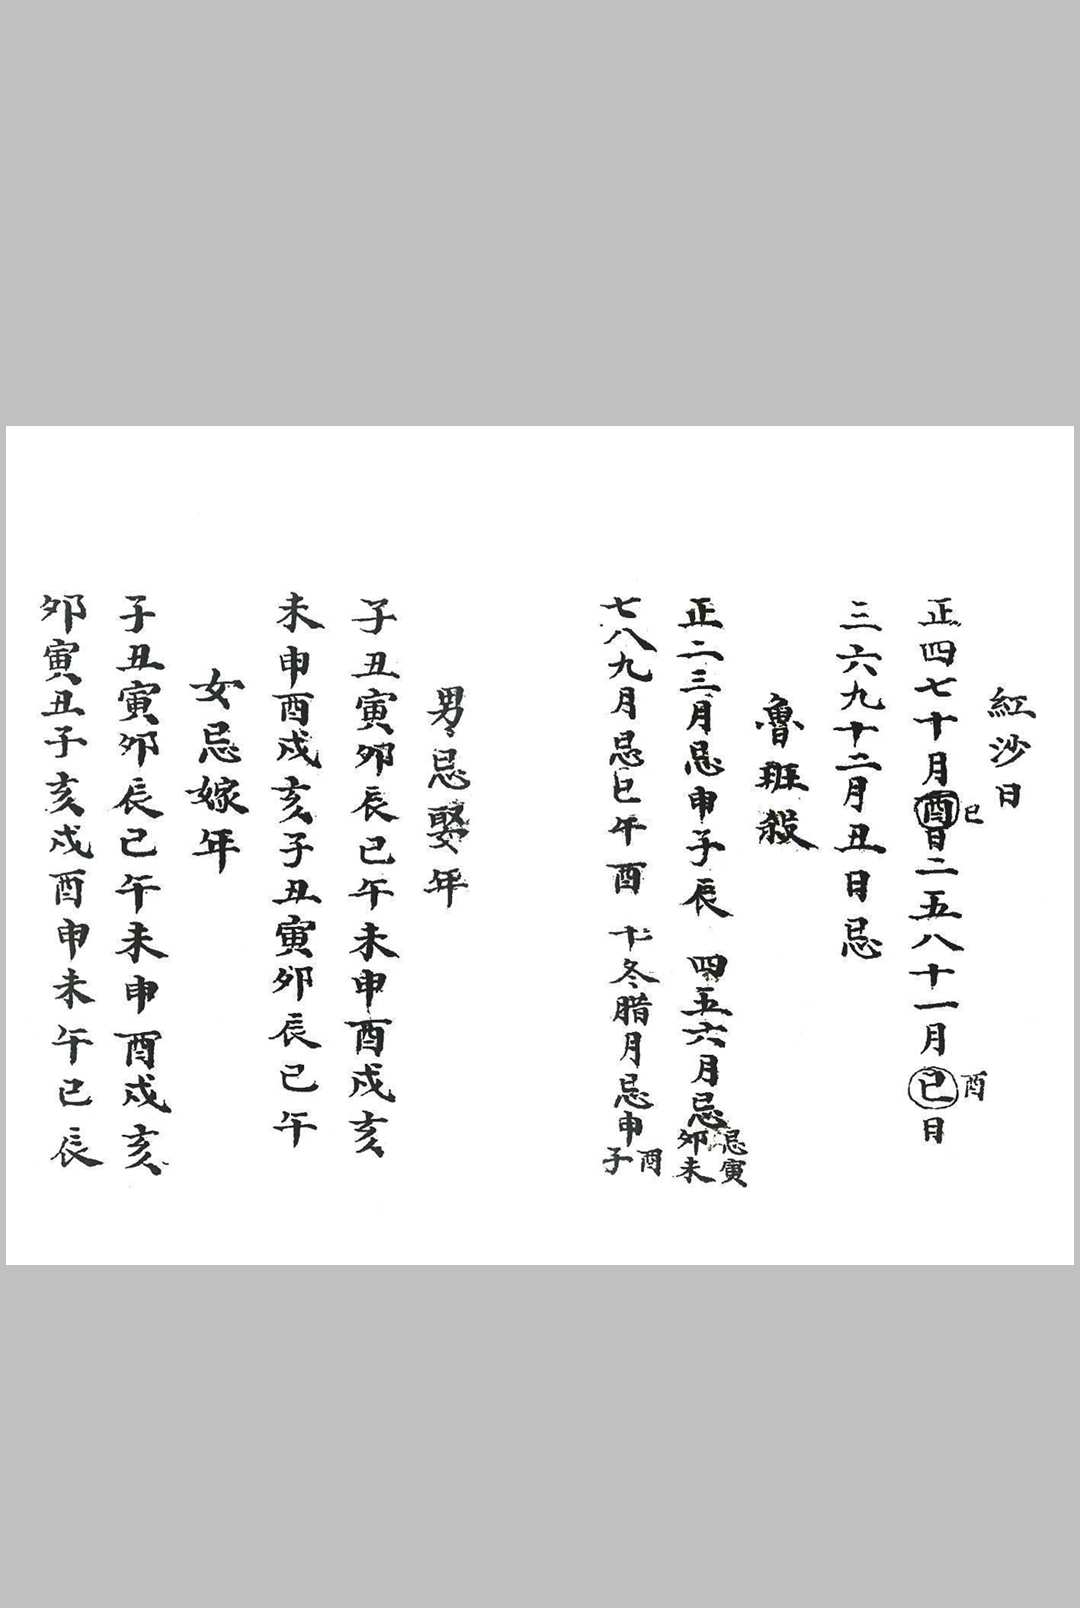 紅沙日
正四七十月酉日二五八十一月巳日
巳
酉
三六九十二月丑日忌
魯班殺
正二三月忌申子辰 四五六月忌卯未
忌寅
七八九月忌巳午酉 十冬腊月忌申子
酉
男忌娶年
子丑寅卯辰巳午未申酉戍亥
未申酉戍亥子丑寅卯辰巳午
女忌嫁年
子丑寅卯辰巳午未申酉戍亥
卯寅丑子亥戍酉申未午巳辰